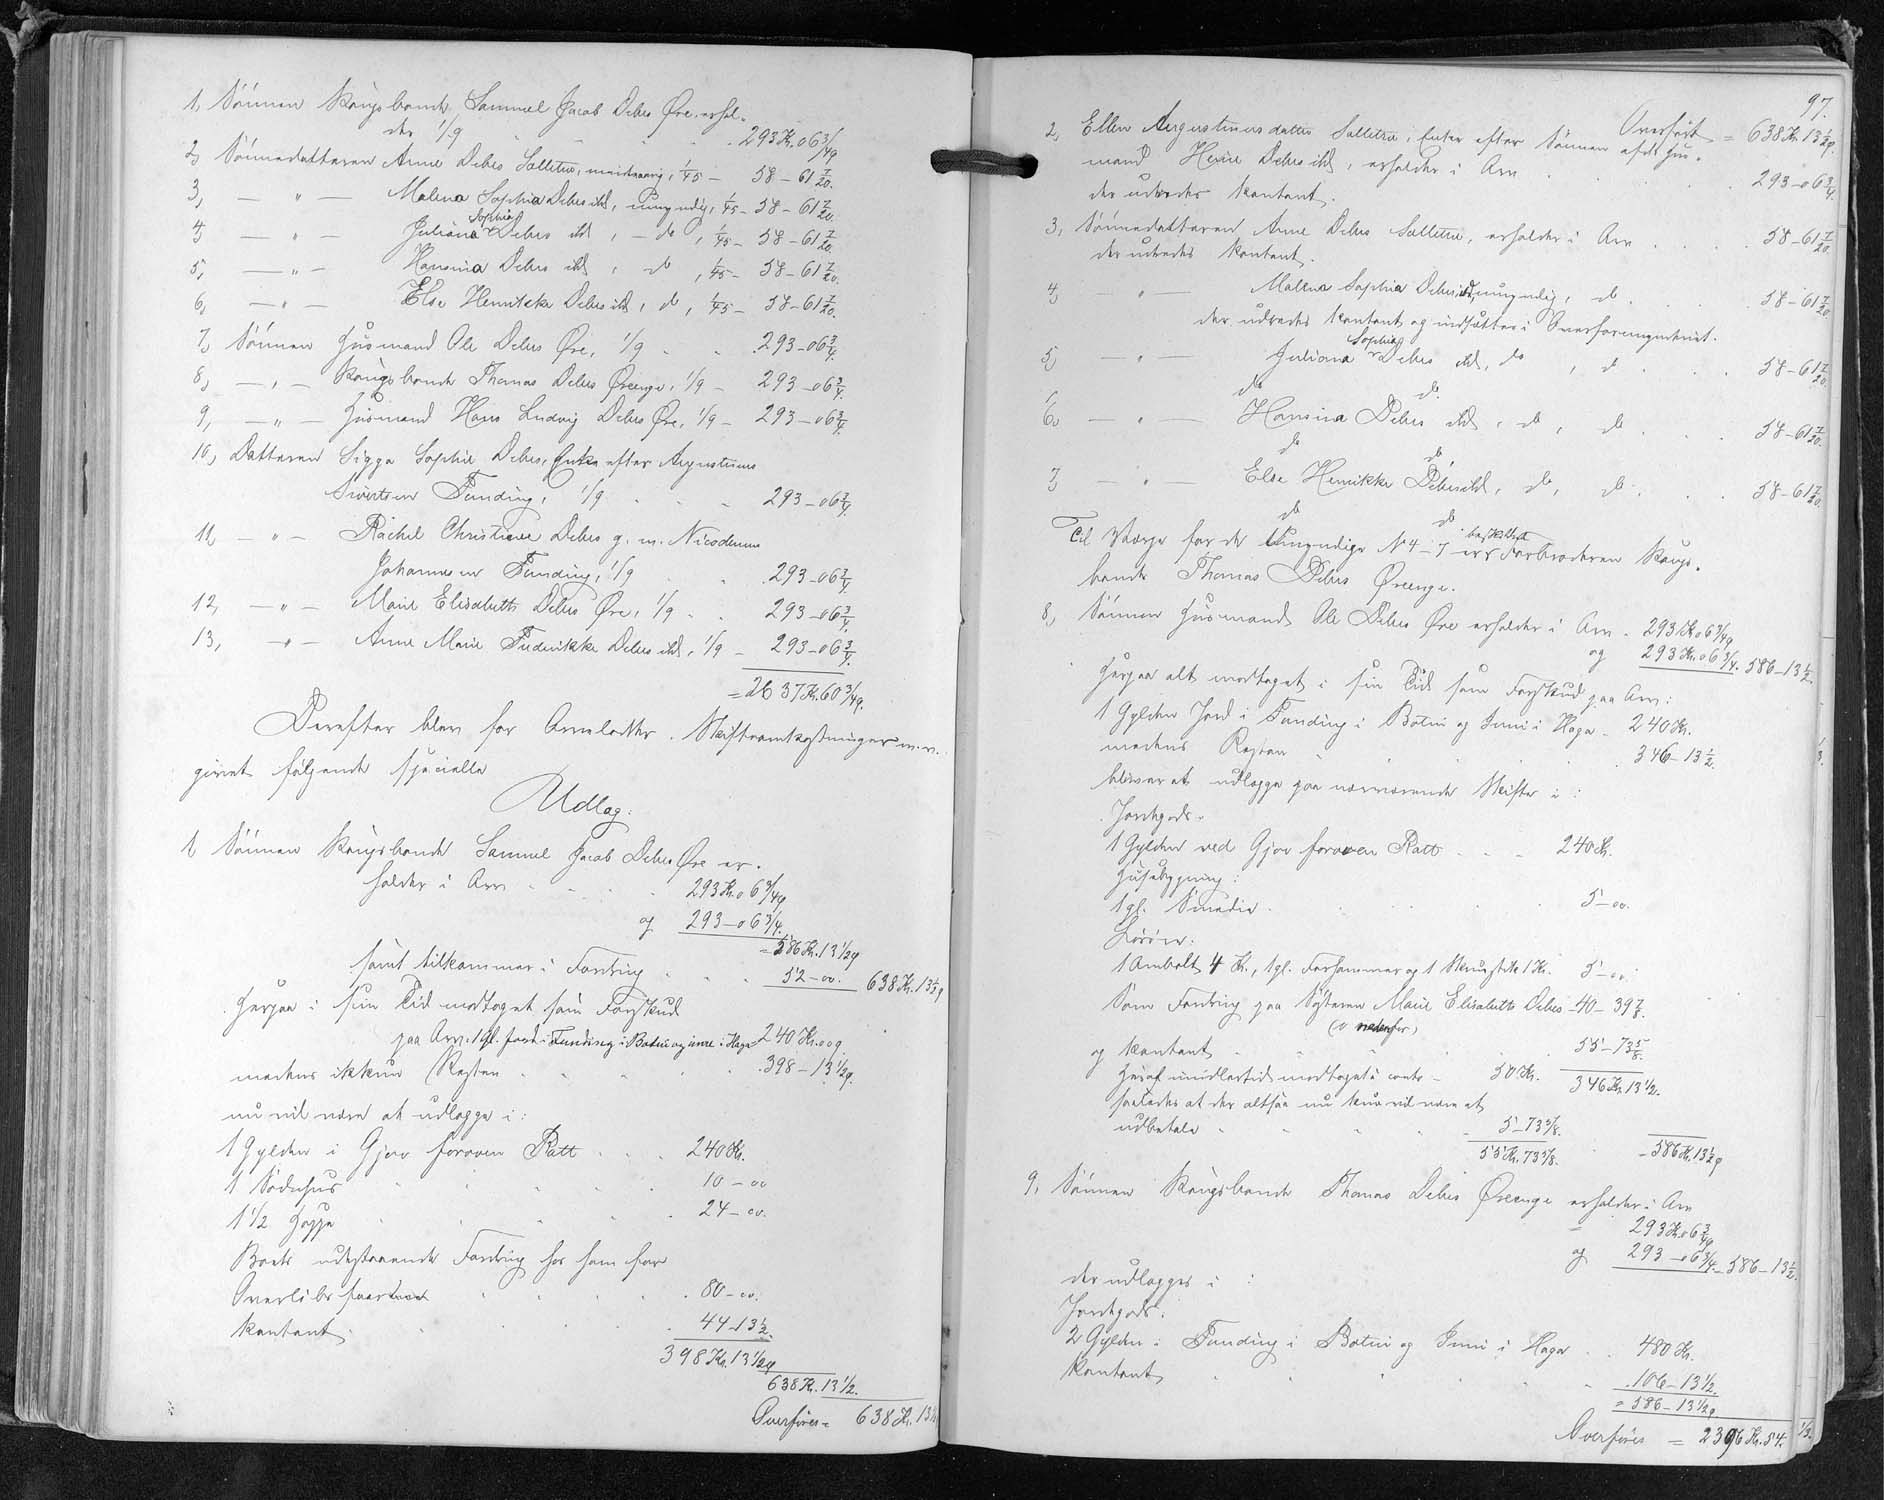 1, Sönnen Kongsbonde Samuel Jacob Debes Øre, erhol-
der 1/9 . . . 293 Kr. 06 3/4 q
2, Sönnedatteren Anne Debes Selletræ, mindreaarig, 1/45 – 58 – 61 7/20.
3, — " — Malena Sophia Debes ibd, umyndig, 1/45 – 58 – 61 7/20.
4, — " — Juliane Sophie Debes ibd, – do, 1/45 – 58 – 61 7/20.
5, — " — Hansina Debes ibd, do, 1/45 – 58 – 61 7/20.
6, — " — Else Henrikke Debes ibd, do, 1/45 – 58 – 61 7/20.
7, Sönnen Husmand Ole Debes Øre, 1/9 . . 293 – 06 3/4.
8, — " — Kongsbonde Thomas Debes Øreenge, 1/9 – 293 – 06 3/4.
9, — " — Husmand Hans Ludvig Debes Øre, 1/9 – 293 – 06 3/4.
10, Datteren Sigga Sophie Debes, Enke efter Augustinus
Sivertsen Funding, 1/9 . . . 293 – 06 3/4.
11, — " — Rachel Christiane Debes g. m. Nicodemus
Johannesen Funding, 1/9 . . 293 – 06 3/4.
12, — " — Marie Elisabeth Debes Øre, 1/9 . . 293 – 06 3/4.
13, — " — Anne Marie Frederikke Debes ibd, 1/9 – 293 – 06 3/4.
= 2637 Kr. 60 3/4 q.
Derefter blev for Arvelodder, Skifteomkostninger m. v.
givet følgende specielle
Udlag:
1, Sönnen Kongsbonde Samuel Jacob Debes Øre er-
holder i Arv . . . . 293 Kr. 06 3/4 q
og 293 – 06 3/4.
= 586 Kr. 13 1/2 q
samt tilkommer i Fordring . . . 52 – 00. 638 Kr. 13 1/2 q
Herpaa i sin Tid modtaget som Forskud
paa Arv: 1 Gl. Jord i Funding i Botni og inni i Haga 240 Kr. 00 q.
medens ikkun Resten . . . . 398 – 13 1/2 q.
nu vil være at udlægge i:
1 Gylden i Gjov foroven Ratt . . . 240 Kr.
1 Sødnhus . . . . 10 – 00
1 1/2 Hoppe . . . . 24 – 00.
Boets udestaaende Fordring hos ham for
. . . . 80 – 00.
Kontant . . . . 44 – 13 1/2.
398 Kr. 13 1/2 q
638 Kr. 13 1/2.
Overføres = 638 Kr. 13 1/2
97.
Overført = 638 Kr. 13 1/2 q.
2, Ellen Augustinusdatter Selletræ, Enke efter Sönnen afdøde Hus-
mand Debes ibd, erholder i Arv . . . . 293 – 06 3/4.
der udredes kontant.
3, Sönnedatteren Anne Debes Selletræ, erholder i Arv . . . . 58 – 61 7/20.
der udredes kontant.
4, — " — Malena Sophia Debes ibd, umyndig, do . . . 58 – 61 7/20
der udredes kontant og indsættes i Overformynderiet.
5, — " — Juliana Sophia Debes ibd, do, do . . . 58 – 61 7/20.
do do.
6, — " — Hansina Debes ibd, do, do . . . 58 – 61 7/20.
do do
7, — " — Else Henrikke Debes ibd, do, do . . . 58 – 61 7/20.
do do
Til Værge for de Umyndige No 4–7 er beskikket Farbroderen Kongs-
bonde Thomas Debes Øreenge.
8, Sönnen Husmand Ole Debes Øre erholder i Arv . 293 Kr. 06 3/4 q
og 293 Kr. 06 3/4. 586 – 13 1/2.
Herpaa alt modtaget i sin Tid som Forskud paa Arv:
1 Gylden Jord i Funding i Botni og Inni i Haga – 240 Kr.
medens Resten . . . . 346 – 13 1/2.
bliver at udlægge paa nærværende Skifte i:
Jordegods.
1 Gylden ved Gjov foroven Ratt . . . 240 Kr.
Husebygning:
1 gl. Smedie . . . . 5 – 00.
Løsøre:
1 Ambolt 4 Kr., 1 gl. Forhammer og 1 Skrustik 1 Kr. 5 – 00.
Som Fordring paa Søsteren Marie Elisabeth Debes – 40 – 39 7/8.
(v nedenfor)
og Kontant . . . . 55 – 73 5/8.
Heraf imidlertid modtaget à conto – 50 Kr. 346 Kr. 13 1/2.
saaledes at der altsaa nu kun vil være at
udbetale . . . . 5 – 73 5/8.
55 Kr. 73 5/8. – 586 Kr. 13 1/2 q
9, Sönnen Kongsbonde Thomas Debes Øreenge erholder i Arv
= 293 Kr. 06 3/4 q
og 293 – 06 3/4. – 586 – 13 1/2.
der udlægges i:
Jordegods.
2 Gylden i Funding i Botni og Inni i Haga . . 480 Kr.
Kontant . . . . 106 – 13 1/2.
= 586 – 13 1/2 q
Overføres = 2396 Kr. 54. 1/3.